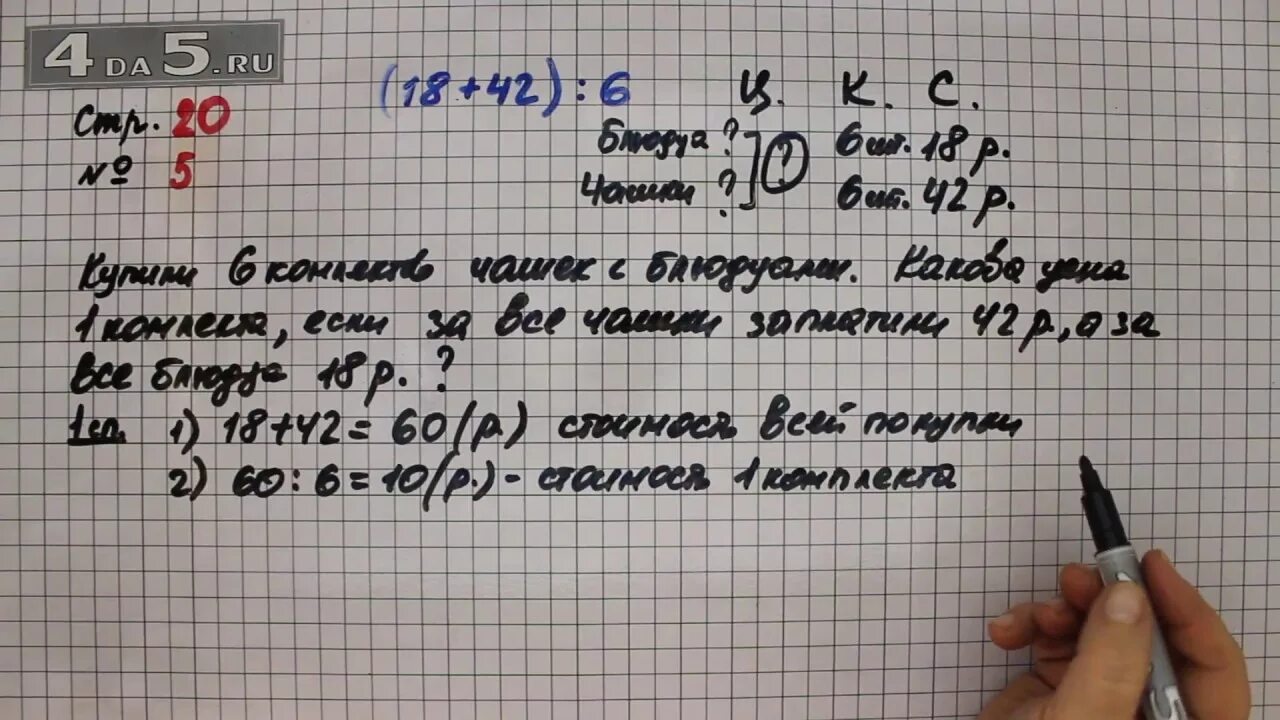 4 DA 5.RU
(18+42):6
Ц. К. С.
Стр. 20
№ 5
Блюдца ? ? 6 шт. 18 р.
Чашки ? 6 шт. 42 р.
Купили 6 комплектов чашек с блюдцами. Какова цена
1 комплекта, если за все чашки заплатили 42 р., а за
все блюдца 18 р. ?
1 сп. 1) 18+42=60(р.) стоимость всей покупки
2) 60:6=10(р.)- стоимость 1 комплекта